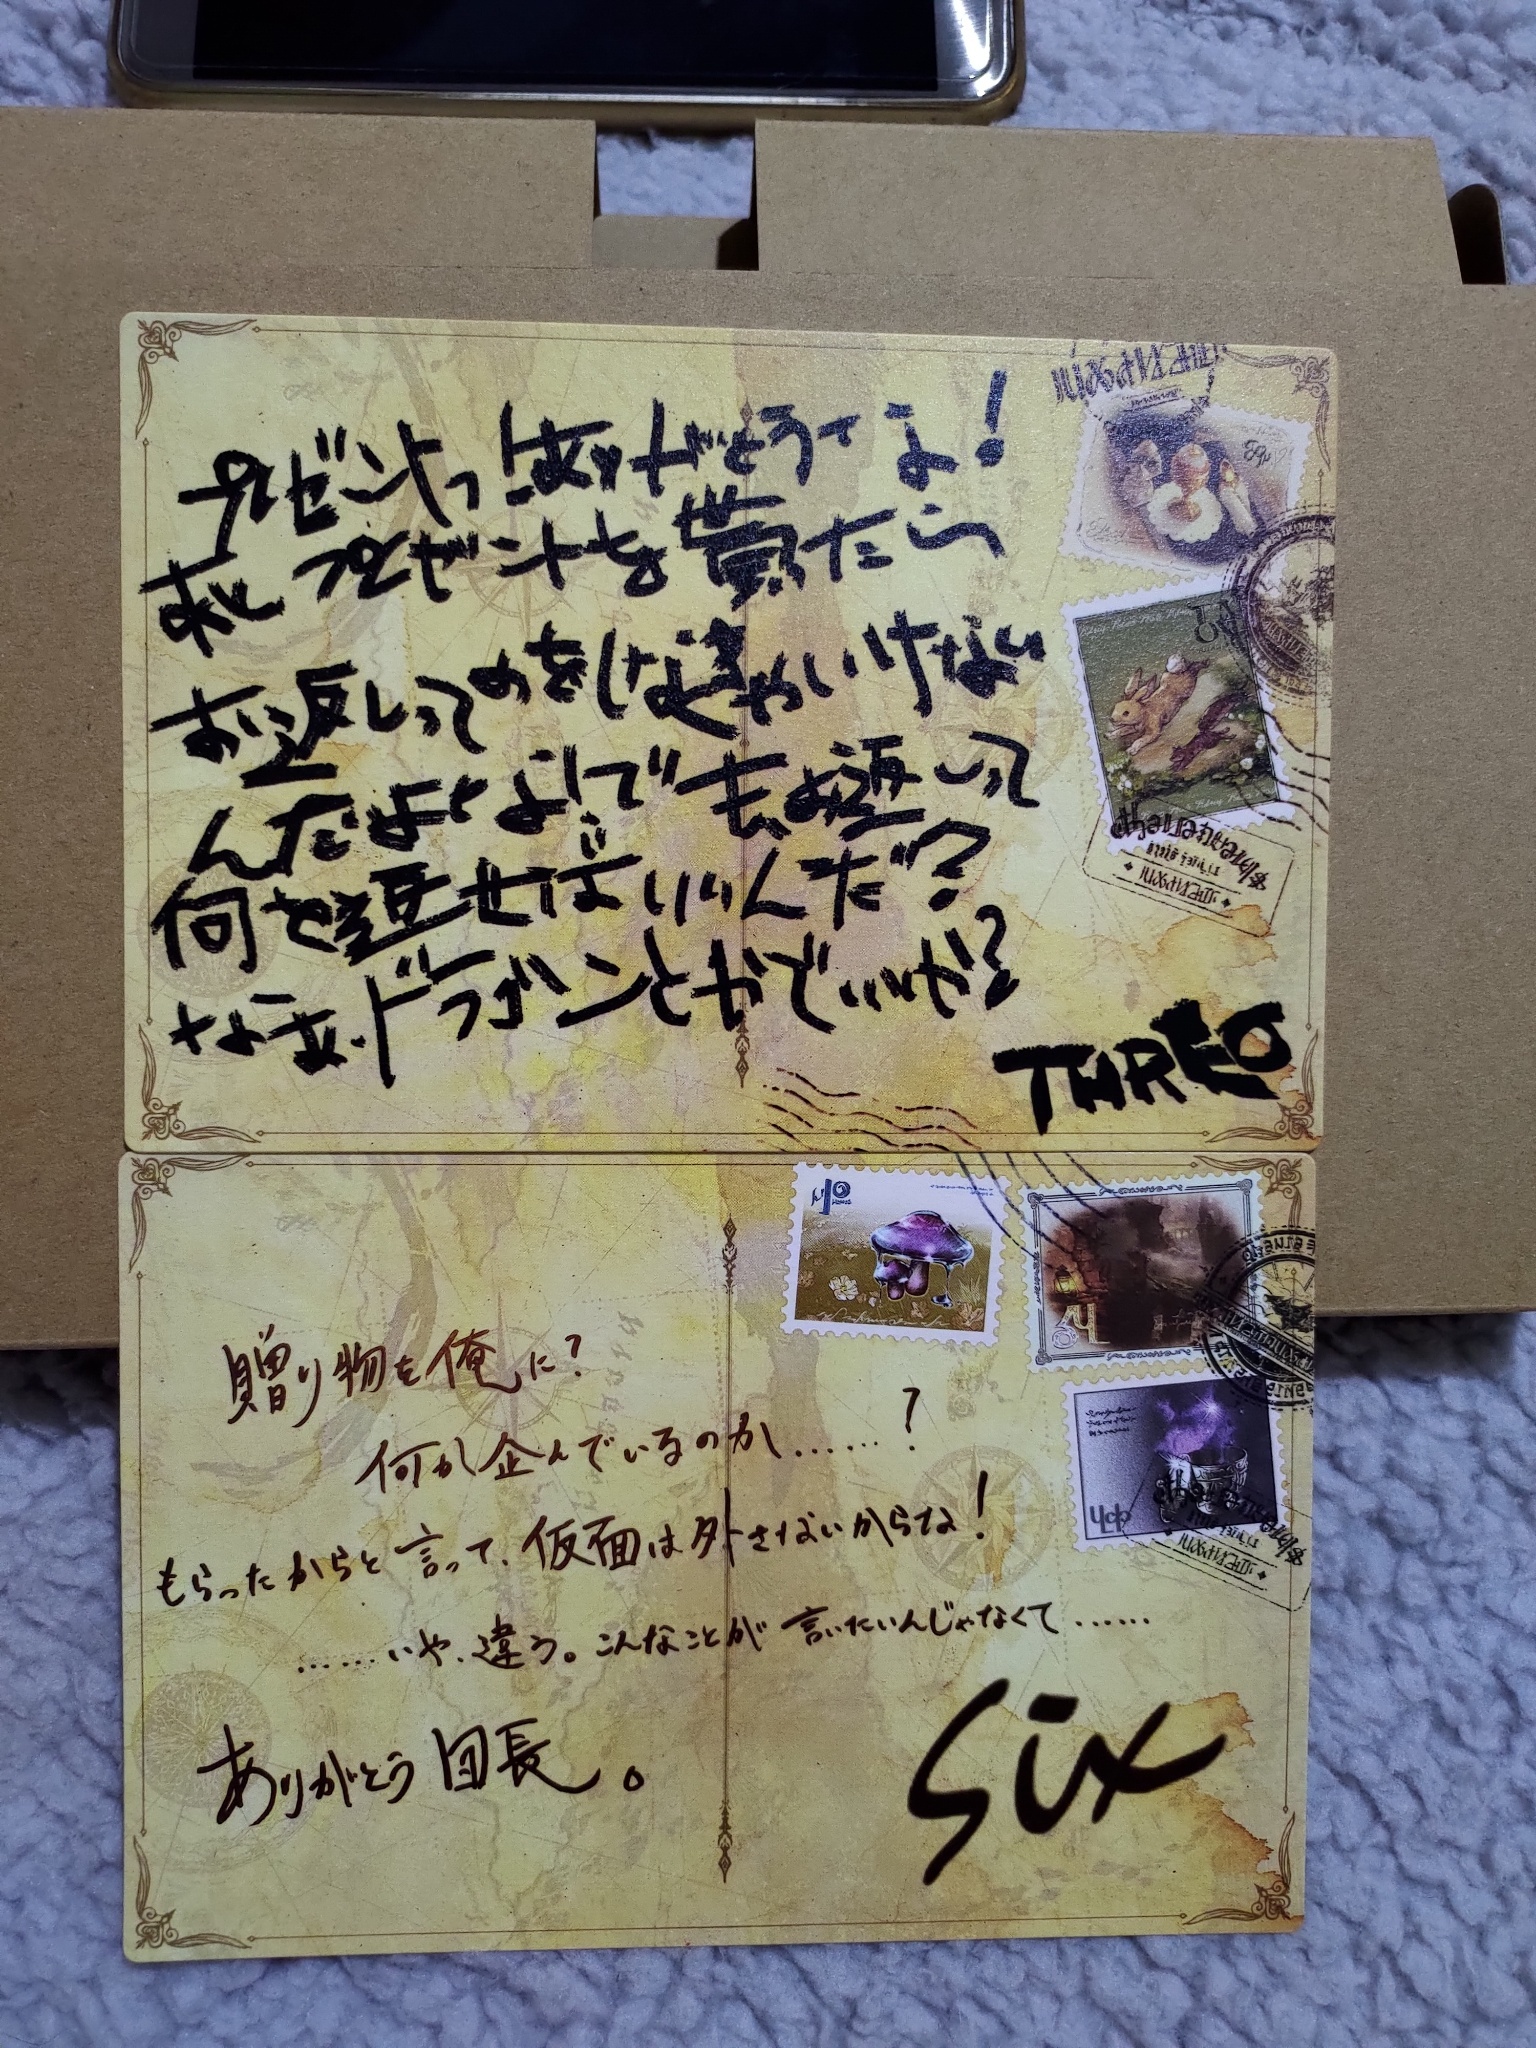 プレゼントっ!ありがとうてな!
あれ プレゼントを貰たら
お返しってのをしなきゃいけない
んだよな!でもお返しって
何を返せばいいんだ?
なあ、ドラゴンとかでいいか?
THREO
贈り物を俺に?
何か企んでいるのか……?
もらったからと言って、仮面は外さないからな!
……いや、違う。こんなことが言いたいんじゃなくて……
ありがとう団長。
Six